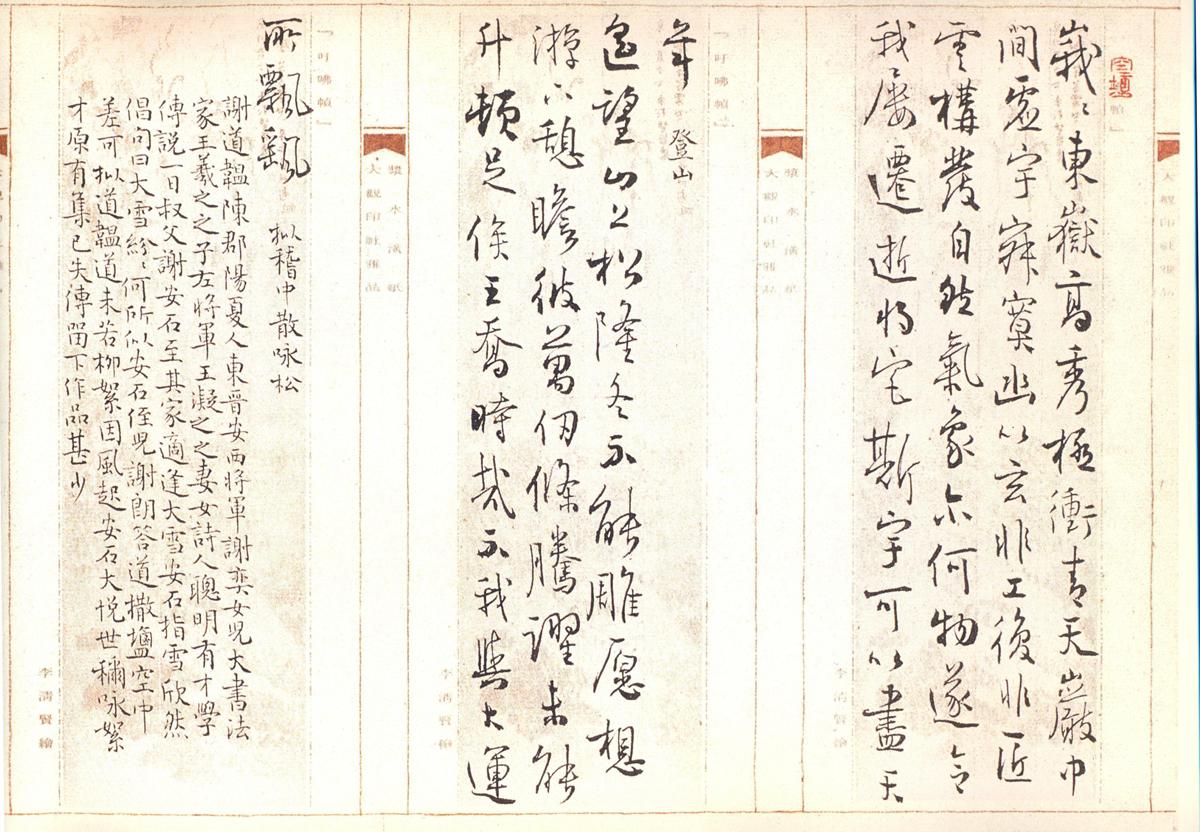 峩〻東嶽高秀極衝青天巖中
間虛宇寂寞幽以玄非工復非匠
雲構發自然氣象尒何物遂令
我屢遷逝將宅斯宇可以盡天
年 登山
遙望山上松隆冬不能雕愿想
游下憩瞻彼萬仞條騰躍未能
升頓足俟王喬時哉不我與大運
所飄颻 拟稽中散咏松
謝道韞陳郡陽夏人東晉安西將軍謝奕女児大書法
家王羲之之子左將軍王凝之之妻女詩人聰明有才學
傳説一日叔父謝安石至其家適逢大雪安石指雪欣然
倡句曰大雪紛〻何所似安石侄児謝朗答道撒鹽空中
差可拟道韞道未若柳絮因風起安石大悅世稱咏絮
才原有集已失傳留下作品甚少
大觀印社雅品
李清賢繪
大觀印社雅品
李清賢繪
李清賢繪